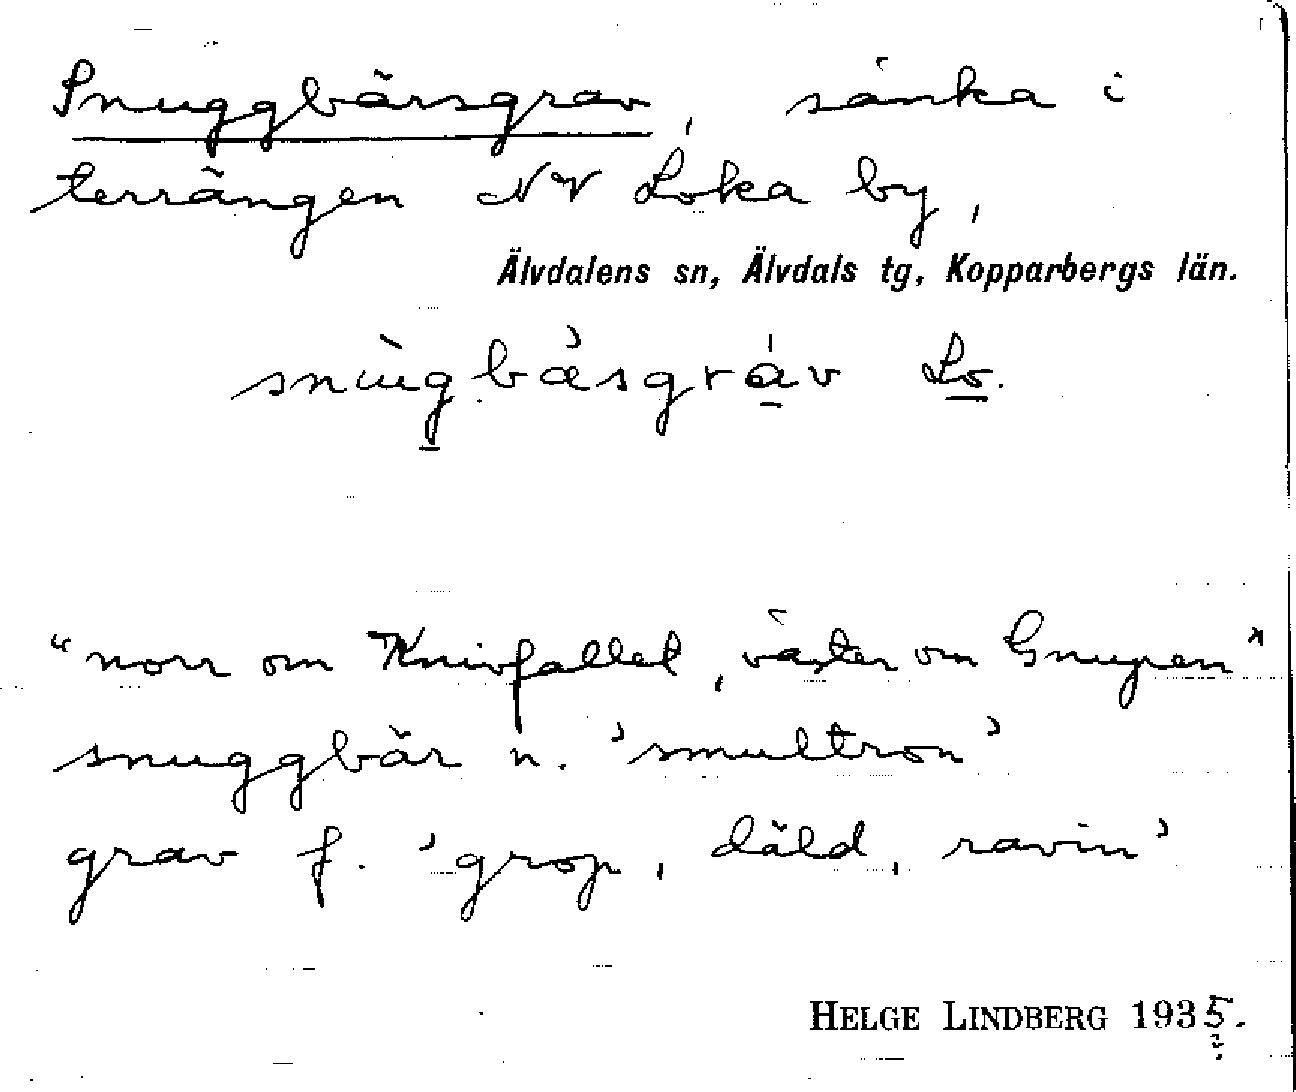 Snuggbärsgrav, sänka i
terrängen NV Loka by,
Älvdalens sn, Älvdals tg, Kopparbergs län.
snùg̲bàsgrá̲v Lo.
"norr om Knivfallet, väster om Gnupen"
snuggbär n. 'smultron'
grav f. 'grop, däld, ravin'
HELGE LINDBERG 1935.